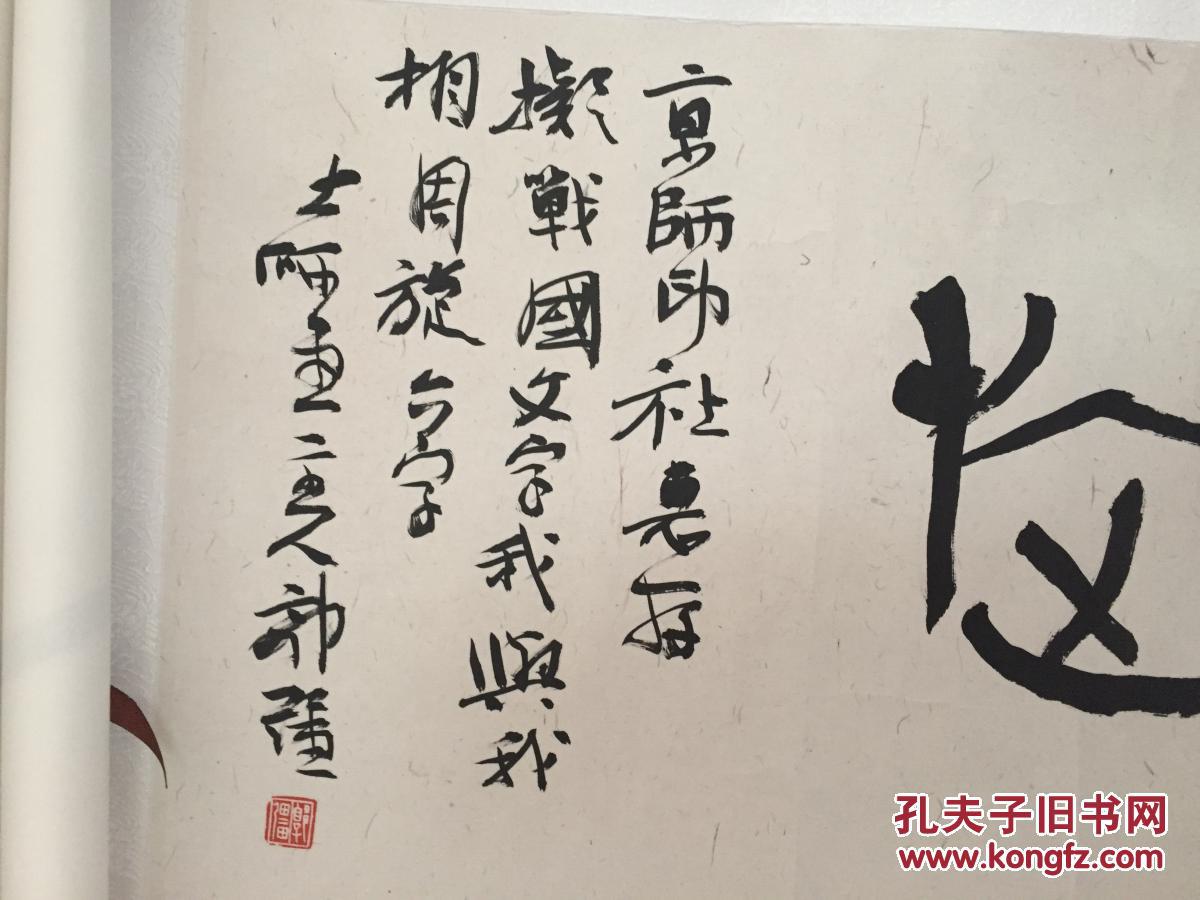 京師印社惠存
擬戰國文字我與我
相周旋六字
主人郭
孔夫子旧书网
www.kongfz.com